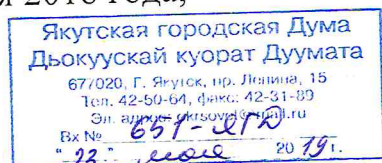 2018 года,
Якутская городская Дума
Дьокуускай куорат Дуумата
677020, Г. Якутск, пр. Ленина, 15
Тел. 42-50-64, факс: 42-31-89
Эл. адрес:
Вх № 651-ЯГД
"22" мая 2019 г.